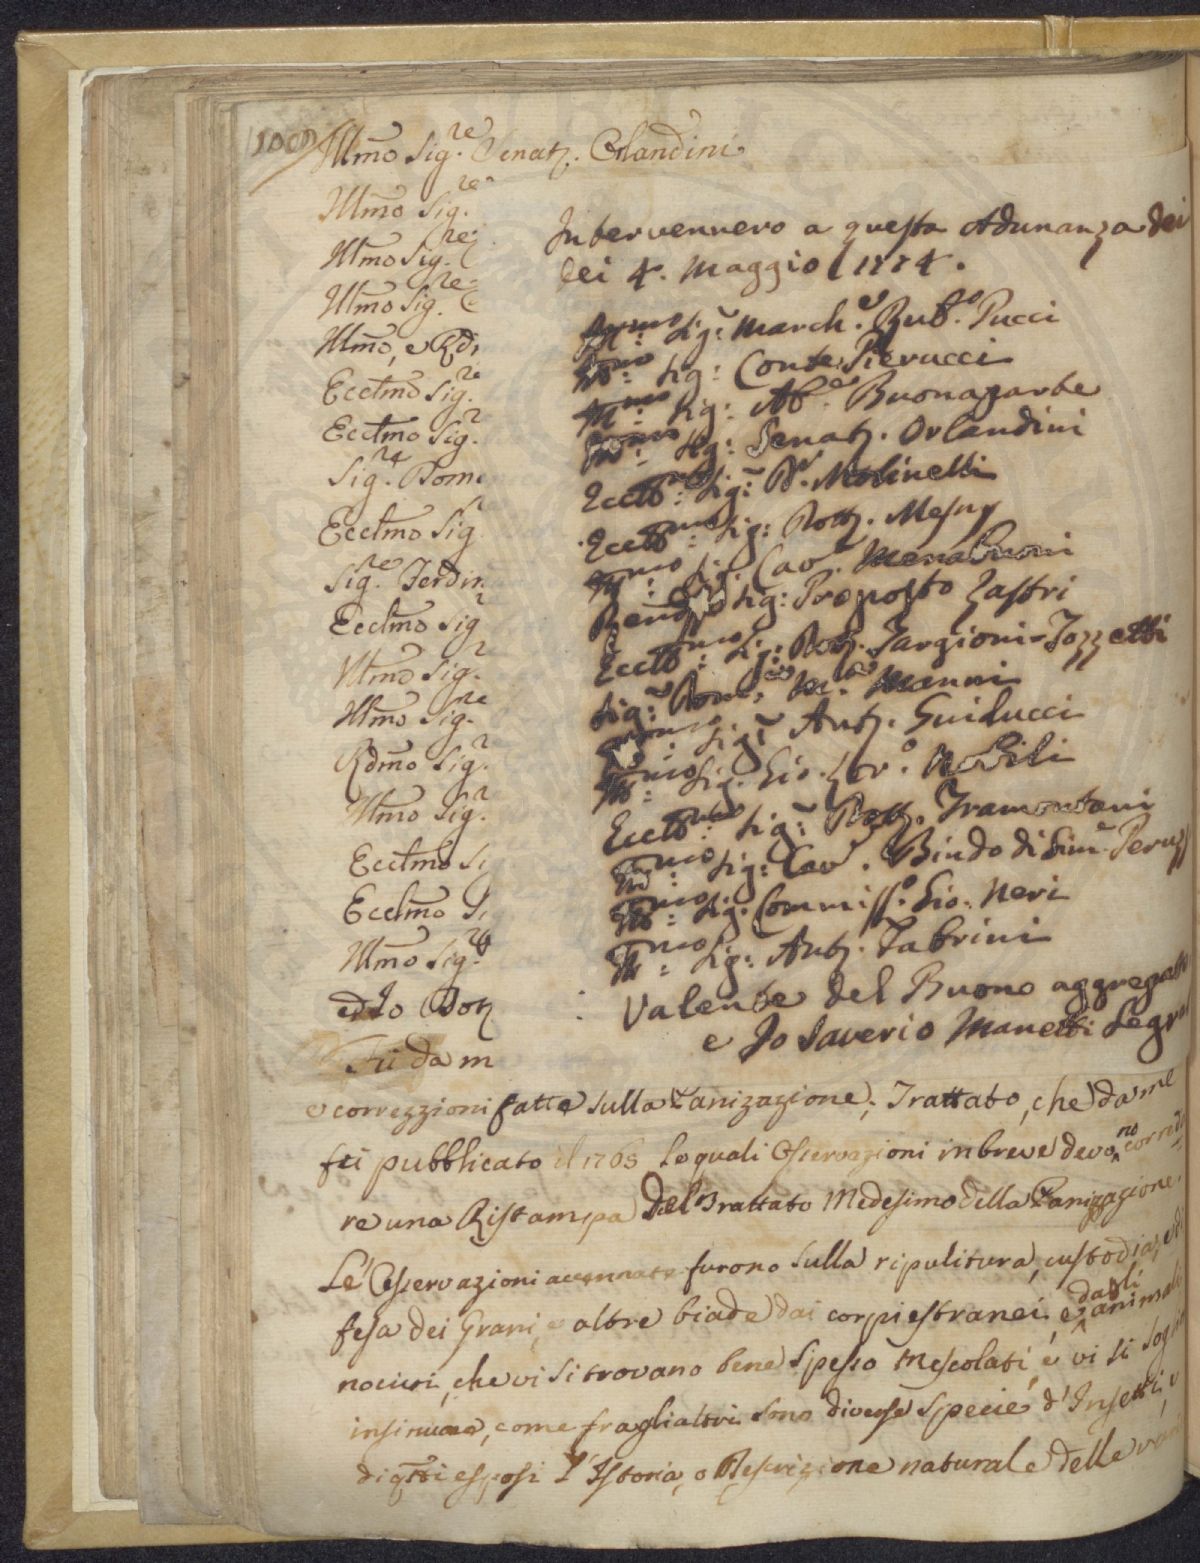 100
Illmo Sig.re Senat. Orlandini
Illmo Sig.re
Illmo Sig.re
Illmo Sig.re
Illmo, e Rd
Ecclmo Sig.re
Ecclmo Sig.
Sig.re Dome
Ecclmo Sig
Sig.re Ferdin
Ecclmo Sig
Illmo Sig.
Illmo Sig.re
Rdmo Sig.
Illmo Sig.
Ecclmo Si
Ecclmo Si
Illmo Sig.re
ed Io Dott
Fù da m
Intervennero a questa Adunanza dei
dei 4. Maggio 1774.
Ill:mo Sig: March.e Rub.o Pucci
Ill:mo Sig: Conte Pierucci
Ill:mo Sig: Ab.e Buonaparte
Ill:mo Sig: Senat. Orlandini
Eccll:mo Sig: D. Molinelli
Eccll:mo Sig: Dott. Mesny
Ill:mo Sig. Cav. Menabuoni
Rend Sig: Proposto Lastri
Eccll:mo Sig. Dott. Targioni-Tozzetti
Sig: Dom.co M.a Manni
Ill:mo Sig: Ant. Guiducci
Ill:mo Sig. Gio. Nobili
Eccll:mo Sig: Dott. Tramontani
Ill:mo Sig: Cav. Bindo di Sim.e Peruzzi
Ill:mo Sig: Commiss.o Gio. Neri
Ill:mo Sig: Ant. Fabrini
Valente del Buono aggregato
e Io Saverio Manetti Segr
e correzzioni fatte sulla Panizazione, Trattato, che da me
fu pubblicato il 1765 le quali Osservazioni in breve devono correda
re una Ristampa del Trattato Medesimo della Panizzazione.
Le Osservazioni accennate furono sulla ripulitura, custodia, e di
fesa dei Grani, e altre biade dai corpi estranei, e dagli animali
nocivi, che vi si trovano bene spesso mescolati, e vi si sogliono
insinuare, come fragli altri sono diverse specie d'Insetti, e
di qti esposi l'Istoria, o Descrizione naturale delle vari